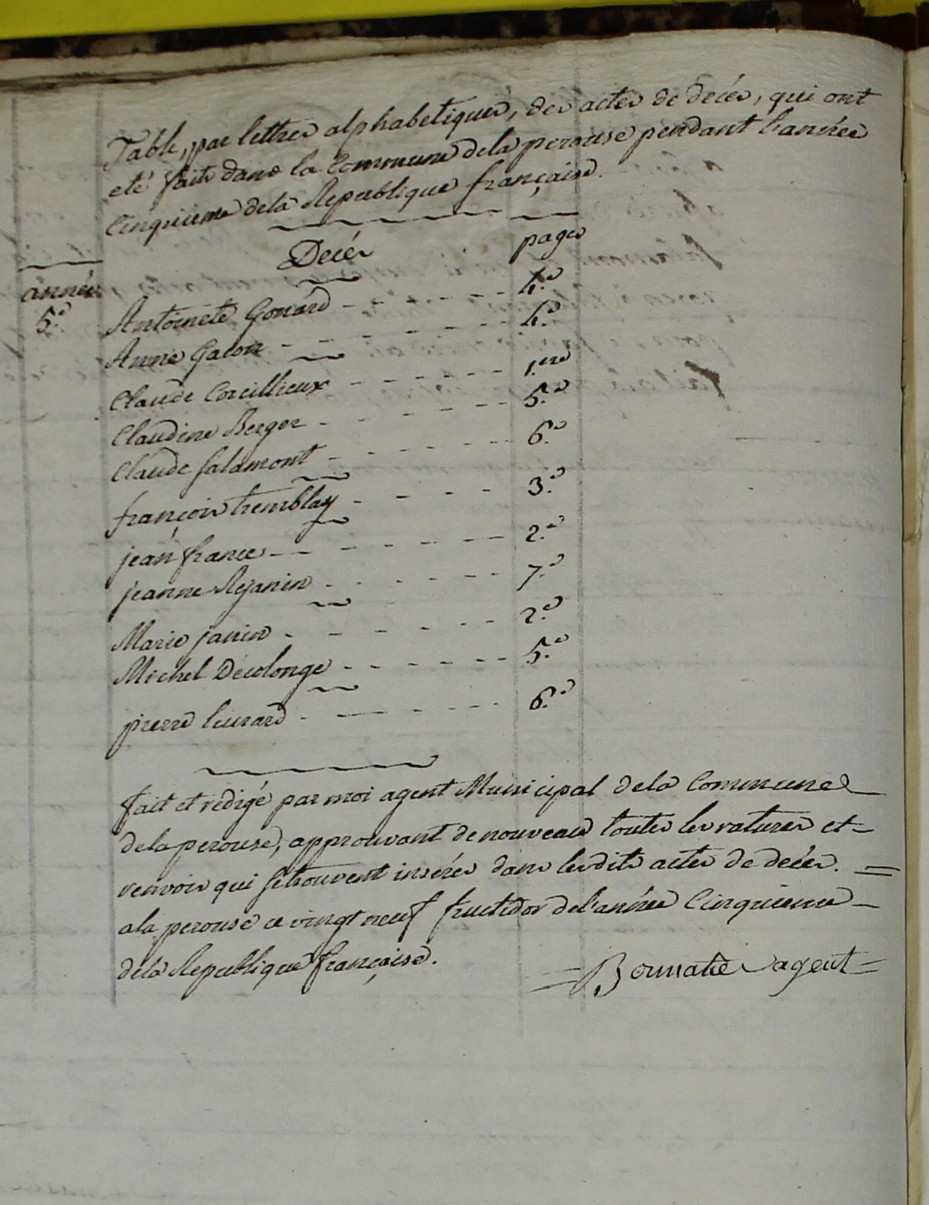 Table, par lettres alphabetiques, des actes de decés, qui ont
eté faits dans la Commune de la perouse pendant l'année
Cinquieme de la Republique française.
Decés pages
année
5.e
Antoinete Gonard 4.e
Anne Gacon 4.e
Claude Corcillieux 1.ere
Claudine Berger 5.e
Claude Salamont 6.e
françois tremblay 3.e
jean france 2.e
jeanne Rejanin 7.e
Marie janin 2.e
Michel Decolonge 5.e
pierre 6.e
fait et redigé par moi agent Municipal de la Commune
de la perouse, approuvant de nouveau toutes les ratures et
renvois qui se trouvent inserés dans lesdits actes de decés.
a la perouse ce vingt neuf fructidor de l'année Cinquieme
de la Republique française.
agent